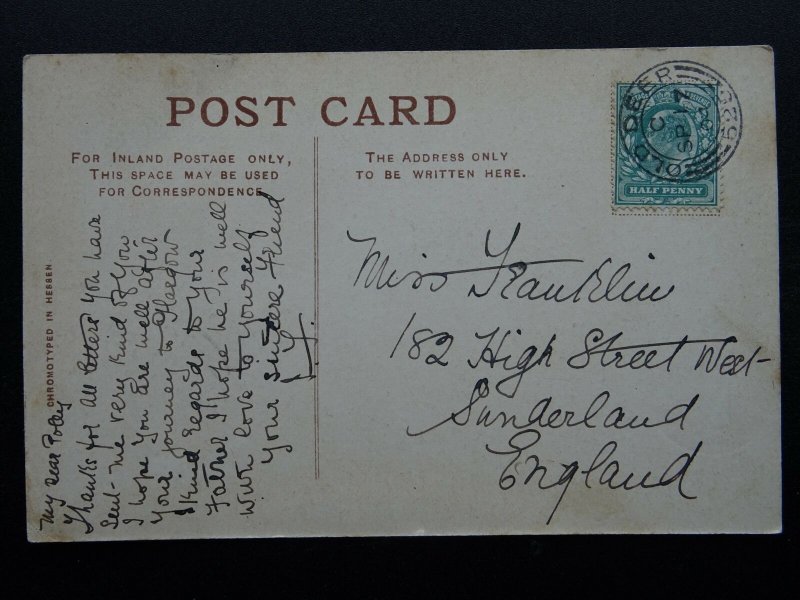 POST CARD
FOR INLAND POSTAGE ONLY,
THIS SPACE MAY BE USED
FOR CORRESPONDENCE
THE ADDRESS ONLY
TO BE WRITTEN HERE.
OLD DEER
C
SP 17
HALF PENNY
CHROMOTYPED IN HESSEN
My dear Polly
Thanks for all letters you have
sent me very kind of you
I hope you are well after
your journey to Glasgow
kind regards to your
Father I hope he is well
With love to yourself
Your sincere Friend
Miss Franklin
182 High Street West
Sunderland
England